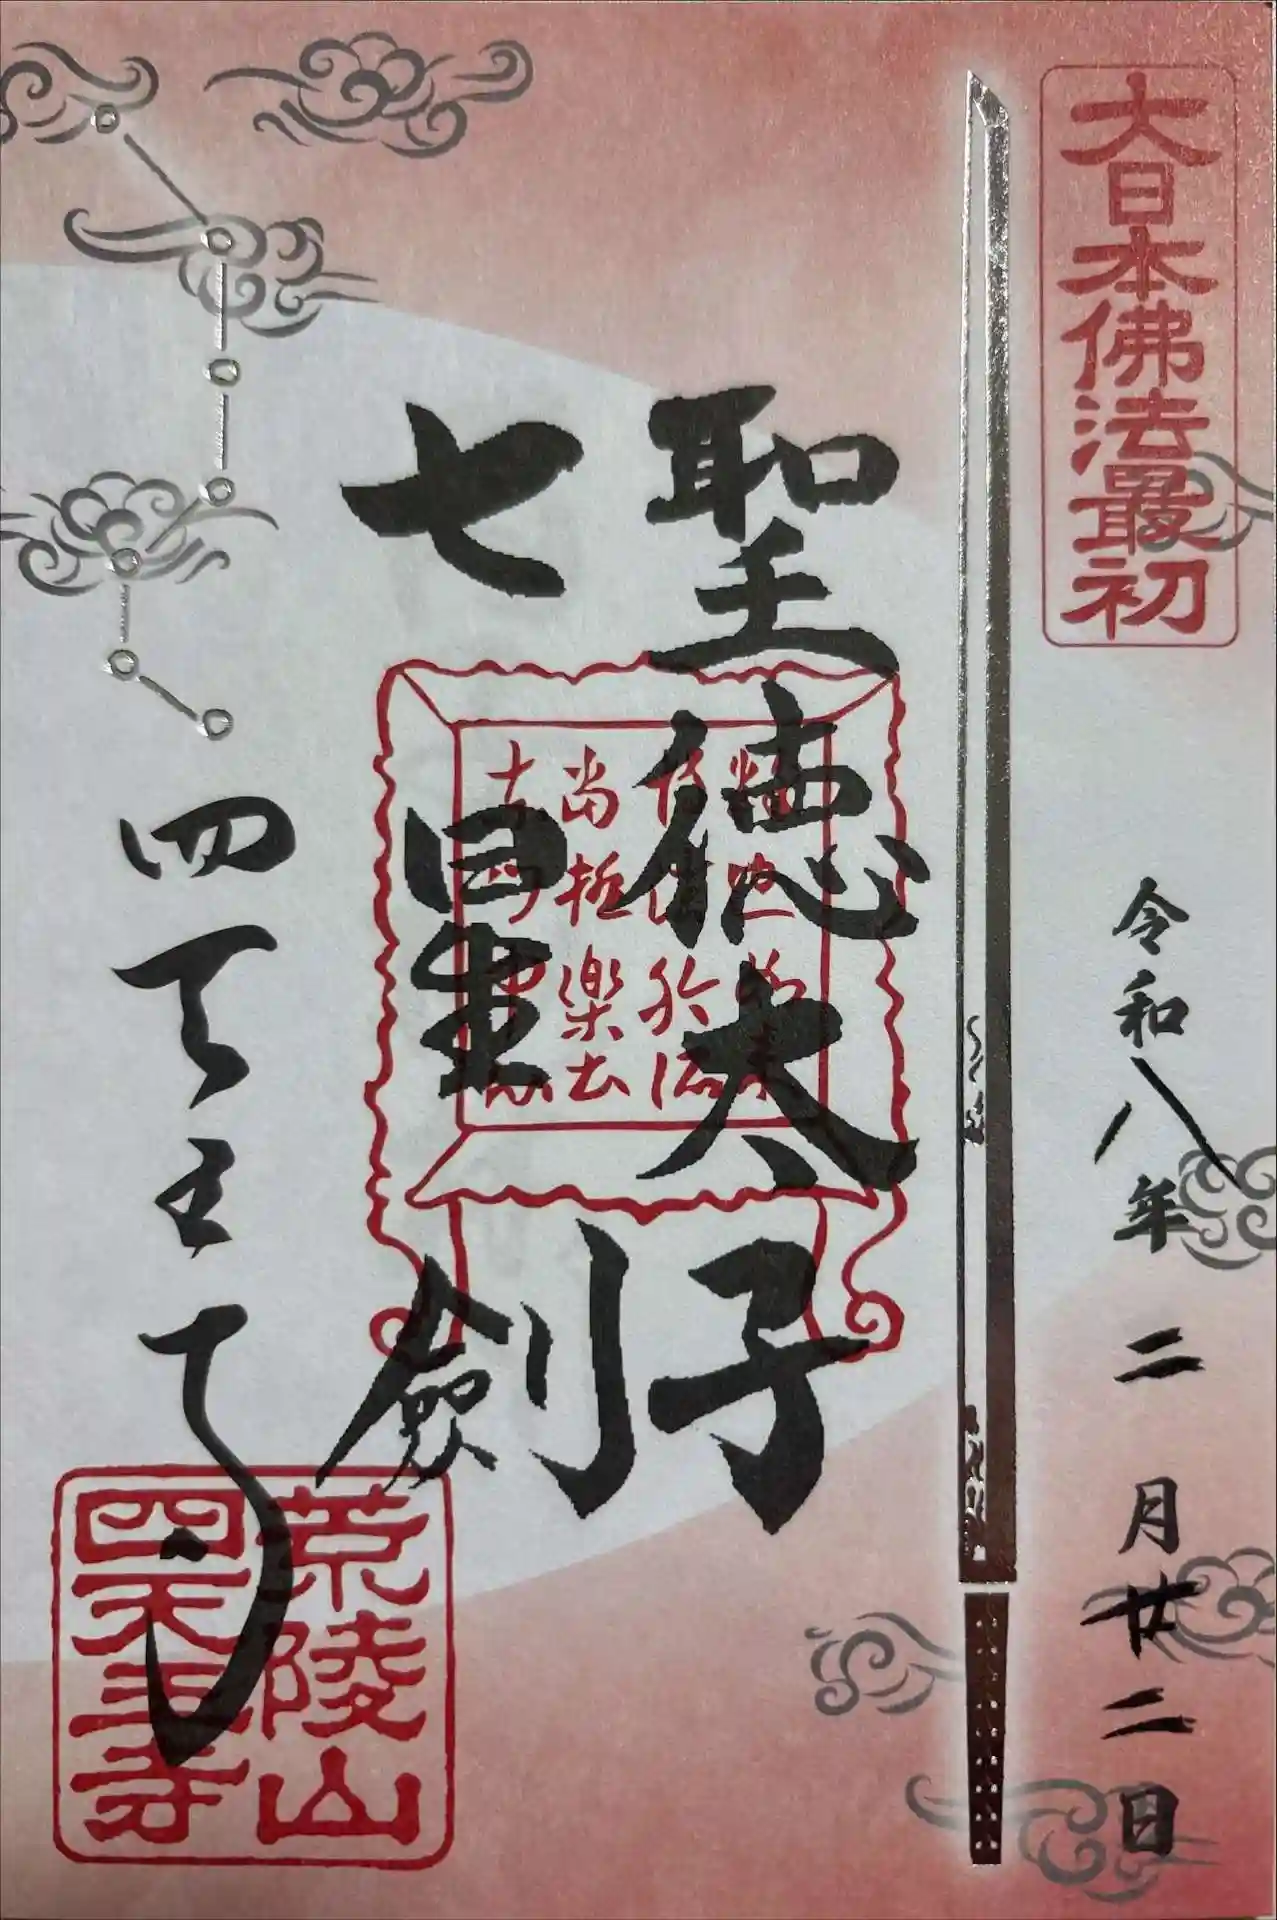 大日本佛法最初
令和八年二月廿二日
聖徳太子
七星劍
当極楽土
四天王寺
荒陵山
四天王寺